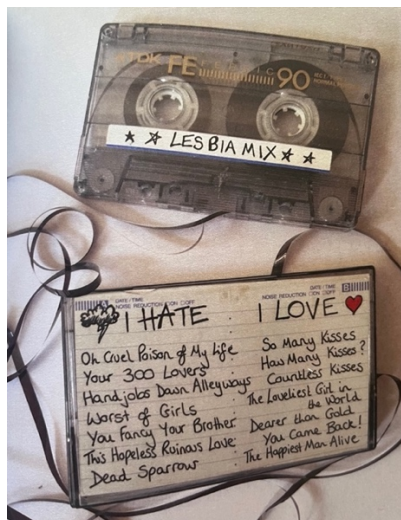 TDK FE 90
★ ★ LESBIA MIX ★ ★
DATE/TIME
NOISE REDUCTION □ON □OFF
I HATE
Oh Cruel Poison of My Life
Your 300 Lovers
Handjobs Down Alleyways
Worst of Girls
You Fancy Your Brother
This Hopeless Ruinous Love
Dead Sparrow
DATE/TIME
NOISE REDUCTION □ON □OFF
B
I LOVE ♥
So Many Kisses
How Many Kisses?
Countless Kisses
The Loveliest Girl in
the World
Dearer than Gold
You Came Back!
The Happiest Man Alive